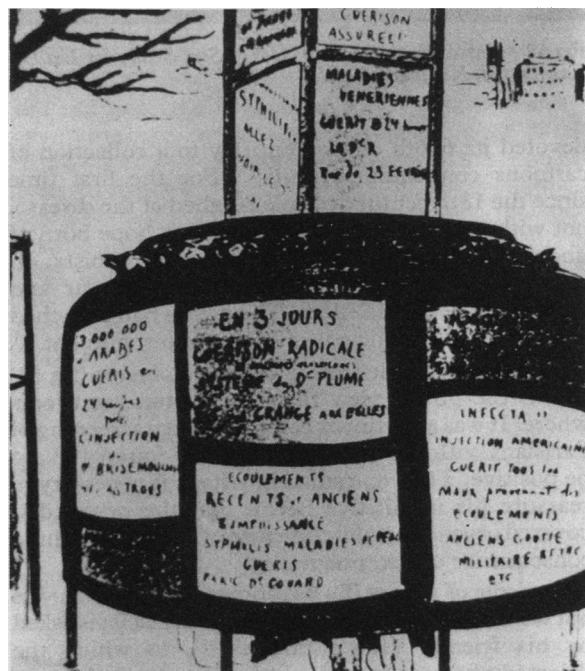 GUERISON
ASSURÉE!
SYPHILI
ALLEZ
VOIR LE
MALADIES
VENERIENNES
GUERIT EN 24
LE Dr R
Rue du 23 FEVRIER
3 000 000
d'ARABES
GUERIS en
24 heures
par
L'INJECTION
du
Dr BRISEMOUCHE
des TROIS
EN 3 JOURS
GUERISON RADICALE
SYSTEME du Dr PLUME
GRANGE AUX BELLES
ECOULEMENTS
RECENTS et ANCIENS
IMPUISSANCE
SYPHILIS MALADIES DE PEAU
GUERIS
PAR LE Dr COUARD
INFECTA !!
INJECTION AMERICAINE
GUERIT TOUS les
MAUX provenant des
ECOULEMENTS
ANCIENS GOUTTE
MILITAIRE
ETC